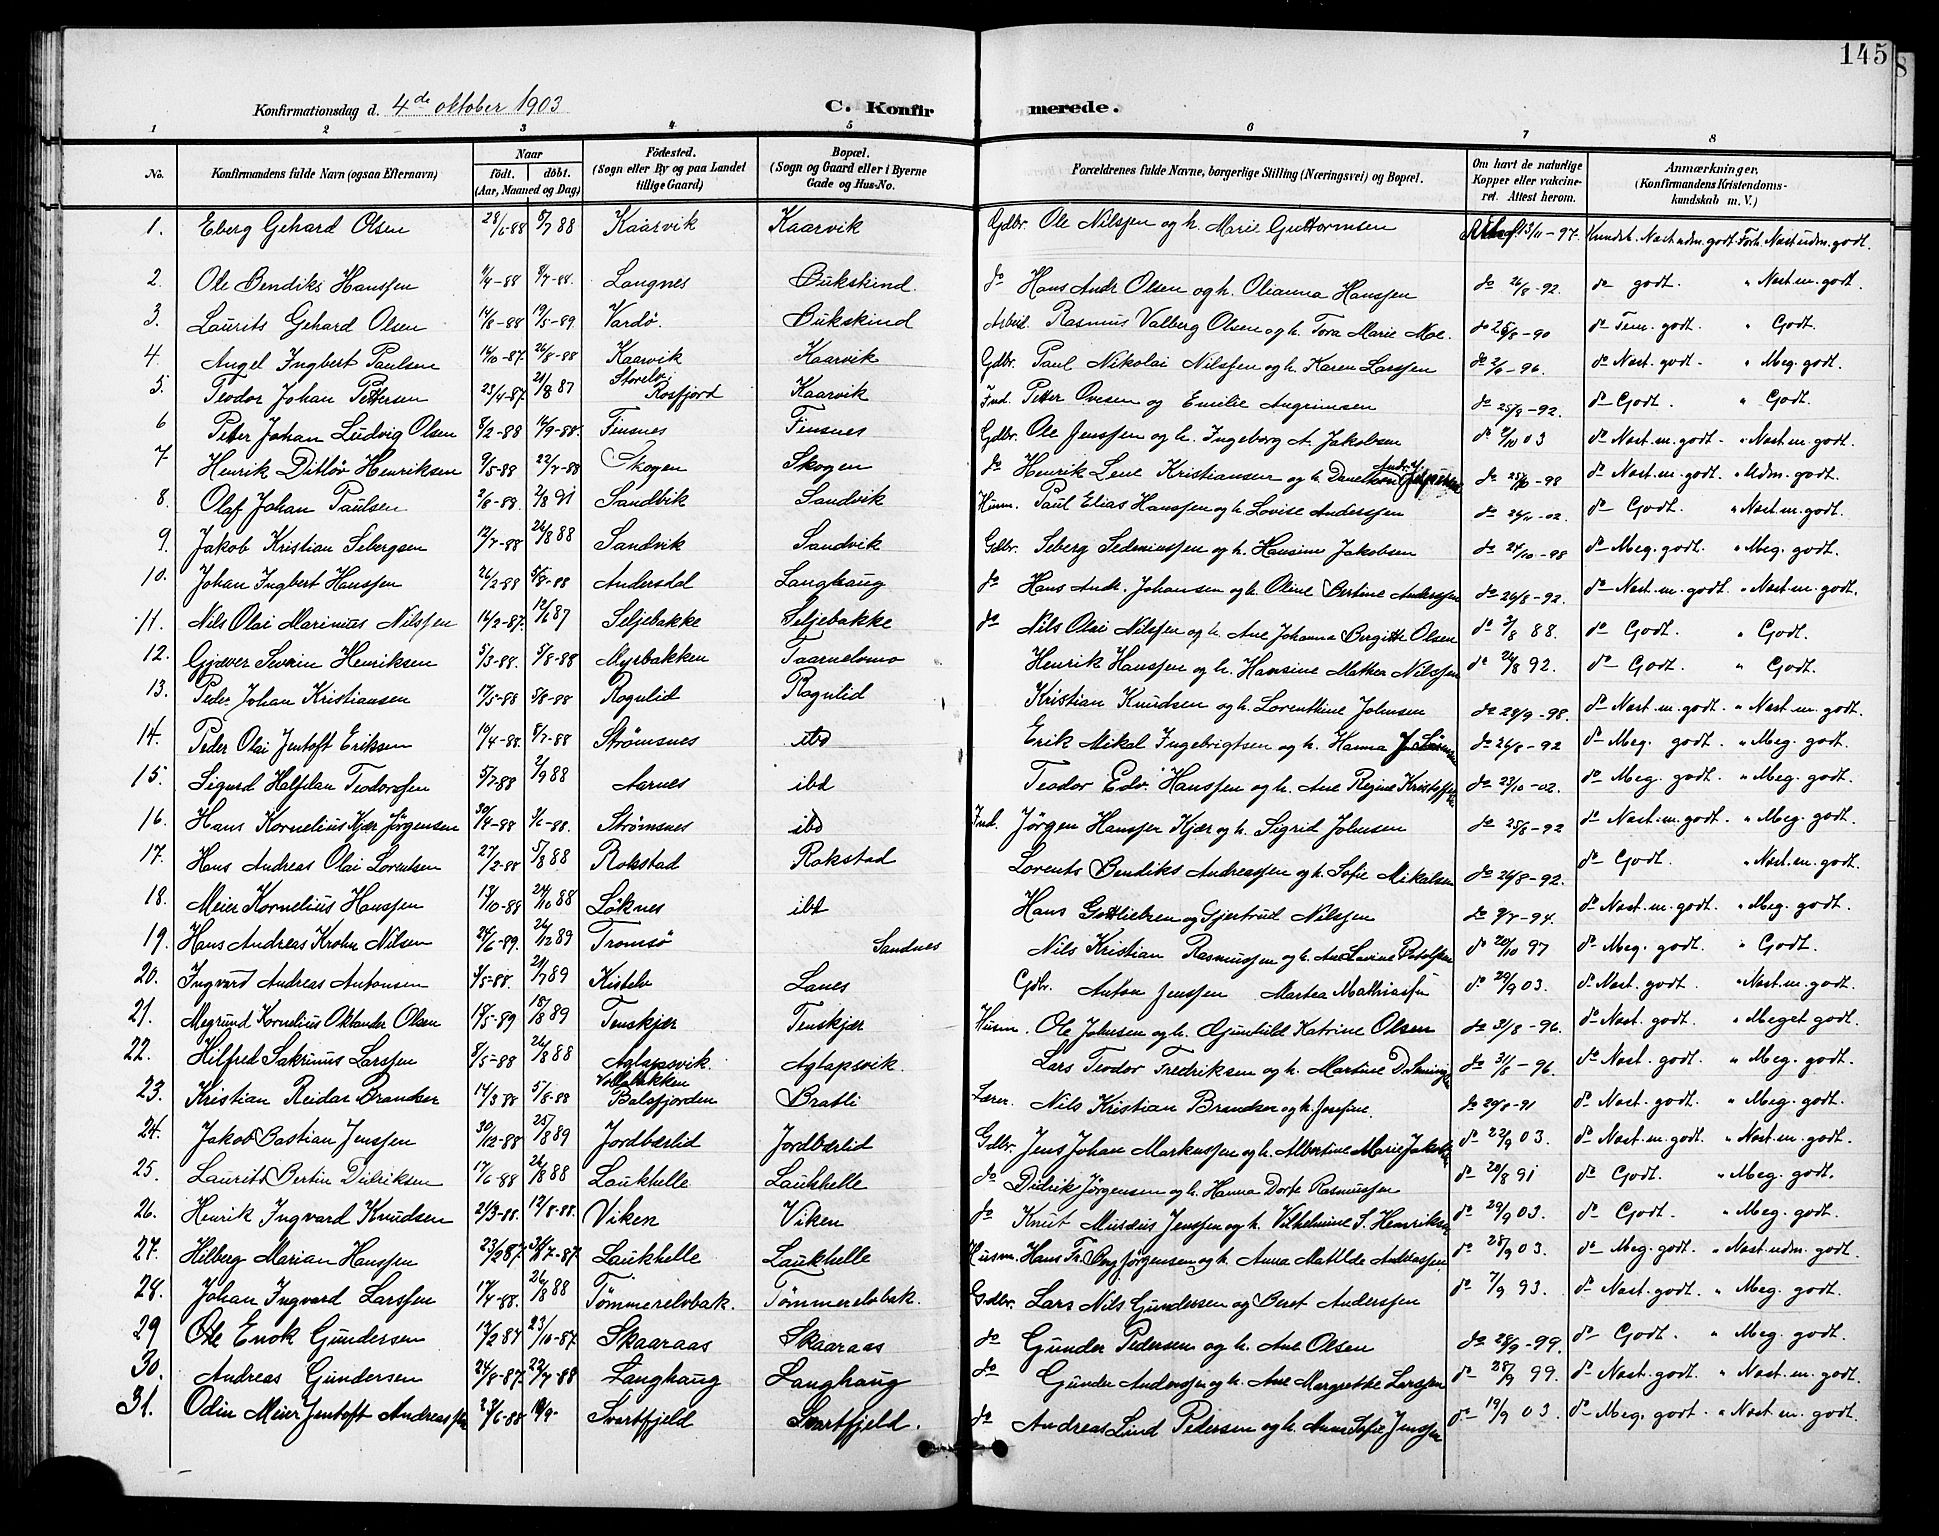 145
Konfirmationsdag d. 4de oktober 1903
C. Konfirmerede.
1 2 3 4 5 6 7 8
No. Konfirmandens fulde Navn (ogsaa Efternavn) Naar født. døbt. (Aar, Maaned og Dag) Fødested. (Sogn eller By og paa Landet tillige Gaard) Bopæl. (Sogn og Gaard eller i Byerne Gade og Hus-No. Forældrenes fulde Navne, borgerlige Stilling (Næringsvei) og Bopæl. Om havt de naturlige Kopper eller vakcineret. Attest herom. Anmærkninger. (Konfirmandens Kristendomskundskab m. V.)
1. Eberg Gehard Olsen 28/6-88 8/7 88 Kaarvik Kaarvik Gdbr. Ole Nilssen og h. Marie Guttormsen 13/11-97. Kundsk. Nost udm. godt Forh. Nost udm. godt.
2. Ole Bendiks Hanssen 8/7-88. Langnes Bukskind. do Hans Andr. Olsen og h. Olianna Hanssen do 26/8-92. do godt. " Nost. m. godt.
3. Laurits Gehard Olsen 14/8-88 19/5-89 Vardø. Bukskind Arbeid. Rasmus Valberg Olsen og h. Tora Marie Moe. do 25/8-90 do Tem. godt. " Godt.
4. Angel Ingbert Paulsen 14/10-87. 26/8-88 Kaarvik Kaarvik Gdbr. Paul Nikolai Nilssen og h. Karen Larssen do 2/6-96. do Nost. godt. " Meg. godt.
5. Teodor Johan Pettersen 23/4-87 21/8 87 Storelv Rosfjord Kaarvik Ind. Petter Ovesen og Emilie Angrimsen do 25/8-92. do Godt. " Godt.
6 Peter Johan Ludvig Olsen 8/2-88 16/9-88. Finsnes Finsnes Gdbr. Ole Jenssen og h. Ingeborg A. Jakobsen do /10 03 do Nost. m. godt. " Nost. m. godt.
7. Henrik Ditløv Henriksen 9/5-88 22/7-88 Skogen Skogen do Henrik Lene Kristiansen og h. do 25/10-98 do Nost. m. godt. " Udm. godt.
8. Olaf Johan Paulsen 2/8-88. 2/8 91 Sandvik Sandvik Husm. Paul Elias Hanssen og h. Lovise Anderssen do 26/11-02. do Godt. " Nost. m. godt.
9. Jakob Kristian Sebergsen 12/7-88 26/8 88 Sandvik Sandvik Gdbr. Seberg Sedeniussen og h. Hansine Jakobsen do 24/10-98 do Meg. godt. " Meg. godt.
10. Johan Ingbert Hanssen 26/2-88 5/8-88 Andersdal Langhaug do Hans Andr. Johansen og h. Oline Bertine Anderssen do 26/8-92. do Nost. m. godt. " Nost. m. godt.
11. Nils Olai Marinus Nilssen 16/2-87. 12/6 87 Seljebakke Seljebakke do Nils Olai Nilssen og h. Ane Johanna Birgitte Olsen do 3/8 88. do Godt. " Godt.
12. Gjæver Severin Henriksen 5/3-88. 5/8-88 Myrbakken Taarnelvmo Henrik Hanssen og h. Hansine Mathea Nilssen do 26/8 92. do Godt. " Godt.
13. Peder Johan Kristiansen 17/5-88 5/8-88 Rognlid Rognlid Kristian Knudsen og h. Lorentine Johnsen do 28/9-98. do Nost. m. godt. " Nost. m. godt.
14. Peder Olai Jentoft Eriksen 10/4-88. 8/7-88 Strømsnes ibd Erik Mikal Ingebrigtsen og h. Hanna do 26/8-92 do Meg. godt. " Meg. godt.
15. Sigurd Halfdan Teodorssen 5/7-88 2/9 88 Aarnes ibd Teodor Edv. Hanssen og h. Ane Regine Kristoffersen do 23/10-02. do Meg. godt. " Meg. godt.
16. Hans Kornelius Kjær Jørgensen 30/4-88 /6-88. Strømsnes ibd Ind. Jørgen Hanssen Kjær og h. Sigrid Johnsen do 25/8-92 do Nost. m. godt. " Meg. godt.
17. Hans Andreas Olai Lorentsen 27/2-88 5/8 88 Rokstad Rakstad Lorents Bendiks Andreassen og h. Sofie Mikalsen do 26/8-92. do Godt. " Nost. m. godt.
18. Meier Kornelius Hanssen 13/10-88 24/10 88 Løknes ibd Hans Gottliebsen og Gjertrud Nilssen do 9/7-94. do Nost. m. godt. " Meg. godt.
19. Hans Andreas Krohn Nilsen 24/6-89. 26/12 89 Tromsø Sandnes Nils Kristian Rasmussen og h. Ane Lovine do 20/10 97 do Meg. godt. " Godt.
20. Ingvard Andreas Antonsen /5-88. 21/7 89 Kistelv Lanes Gdbr. Anton Jenssen Martea Mathiassen do 29/9 03. do Nost. godt. " Nost. m. godt.
21. Megrund Kornelius Oktander Olsen 18/5-89 18/8 89 Tenskjær Tenskjær Husm. Ole Johnsen og h. Gunhild Katrine Olsen do 31/8-96. do Nost. godt. " Meget godt.
22. Hilfred Sakrinus Larssen 8/5-88 26/8 88 Aglapsvik. Aglapsvik. Lars Teodor Fredriksen og h. Martine do 31/8-96. do Nost. godt. " Meg. godt.
23. Kristian Reidar Brandser 14/3 88 5/8-88 Vollabakken Balsfjorden Bratli Lærer. Nils Kristian Brandser og h. Josefine. do 29/8-91 do Nost. godt. " Meg. godt.
24. Jakob Bastian Jenssen 30/12-88 25/8 89 Jordbærlid Jordbærlid Gdbr. Jens Johan Markussen og h. Albertine Marie Jakobsen do 22/9 03. do Nost. m. godt. " Nost. m. godt.
25. Laurits Bertin Didriksen 17/6-88 26/8 88 Laukhelle Laukhelle do Didrik Jørgensen og h. Hanna Dorte Rasmussen do 28/8 91 do Godt. " Meg. godt.
26. Henrik Ingvard Knudsen 21/3-88. 12/8-88. Viken Viken do Knut Musæus Jenssen og h. Vilhelmine S. Henriksen do 29/9 03. do Godt. " Meg. godt.
27. Hilberg Marian Hanssen 23/2 87. /7-87. Laukhelle Laukhelle Husm. Hans Fr. Berg Jørgensen og h. Anna Matilde Andreassen do 28/9 03. do Meg. godt. " Nost. udm. godt.
28. Johan Ingvard Larssen 17/4-88. 26/8 88 Tømmerelvbak. Tømmerelvbak. Gdbr. Lars Nils Gundersen og Beret Anderssen do 7/9 93. do Nost. godt. " Meg. godt.
29 Ole Enok Gundersen 12/2 87 23/10-87. Skaaraas Skaaraas do Gunder Pedersen og h. Ane Olsen do 28/9-99. do Godt. " Meg. godt.
30. Andreas Gundersen 24/8-87. 22/7-88 Langhaug Langhaug do Gunder Anderssen og h. Ane Margrethe Larssen do 28/9 99. do Nost. godt. " Nost. m. godt.
31. Odin Meier Jentoft Andreassen 2/6-88 Svartfjeld Svartfjeld. do Andreas Lind Pedersen og h. Anne Sofie Jenssen do 19/9 03. do Meg. godt. " Nost. m. godt.